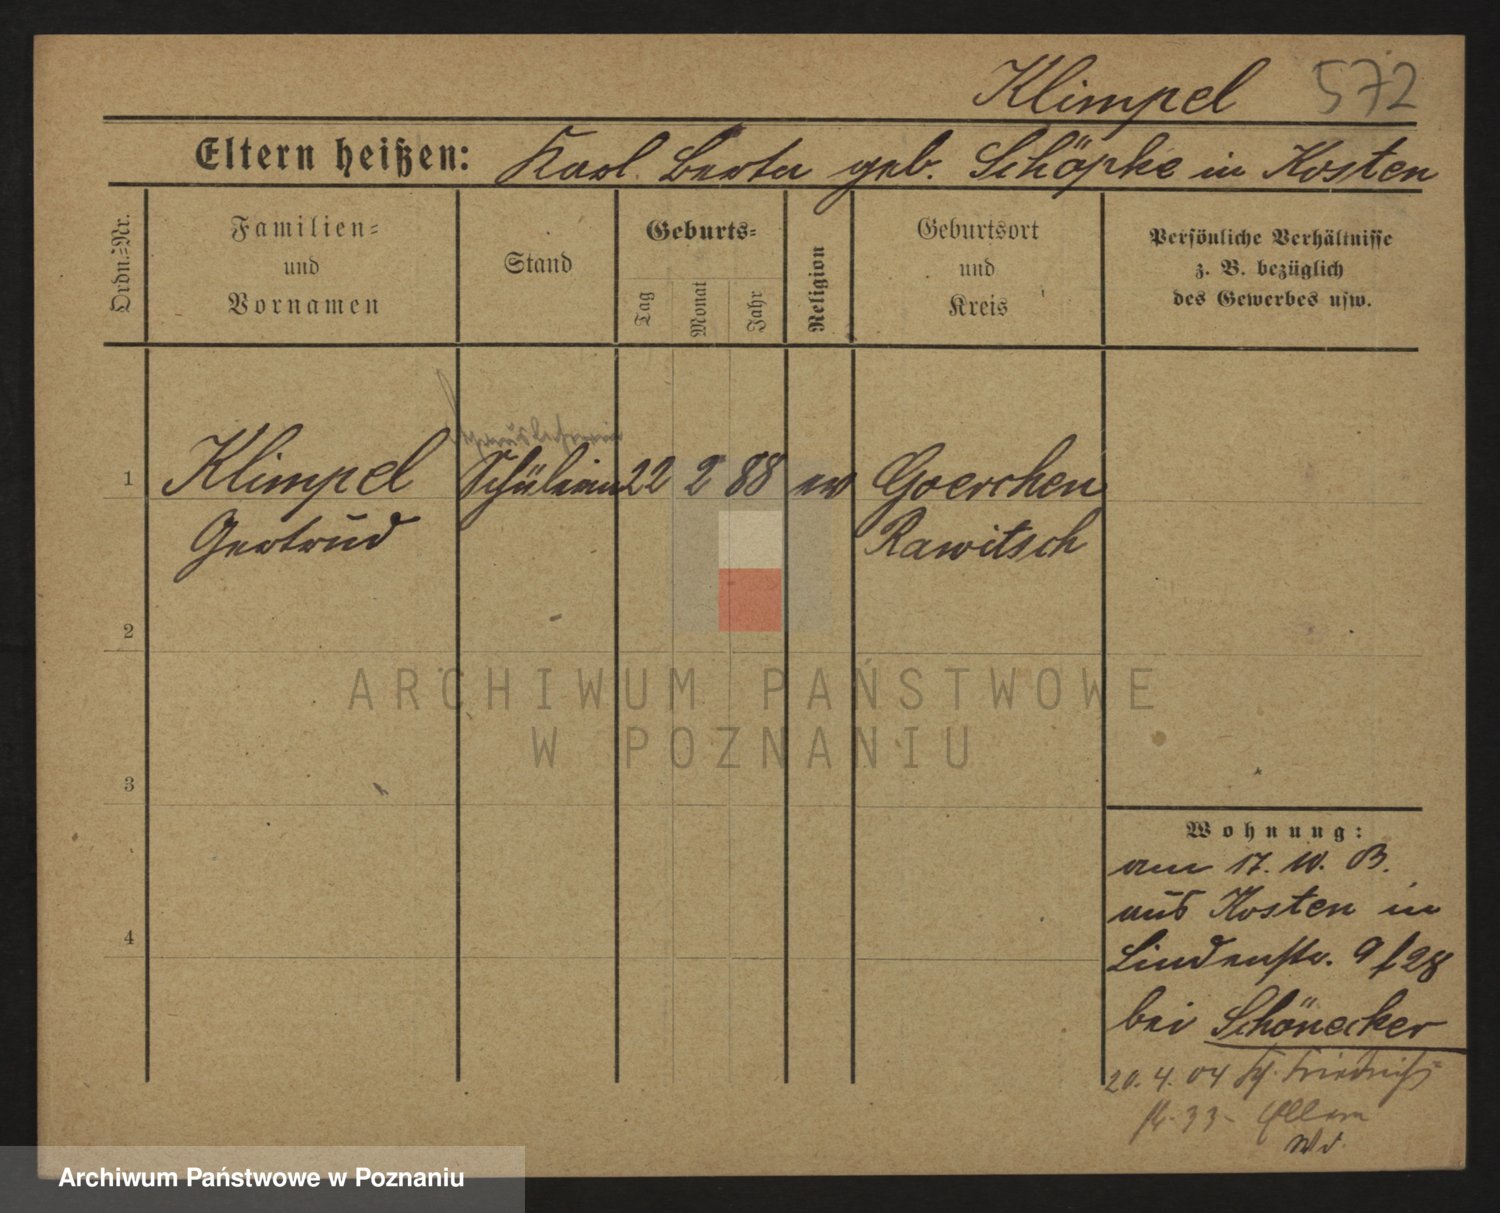 Klimpel 572
Eltern heißen: Karl. Berta geb. Schöpke in Kosten
Ordn.-Nr.
Familien-
und
Vornamen
Stand
Geburts-
Tag
Monat
Jahr
Religion
Geburtsort
und
Kreis
Persönliche Verhältnisse
z. B. bezüglich
des Gewerbes usw.
1 Klimpel Schülerin 22 2 88 ev Goerchen
Gertrud Rawitsch
2
ARCHIWUM PAŃSTWOWE
W POZNANIU
3
4
Wohnung:
am 17. 10. 03.
aus Kosten in
Lindenstr. 9 f 28
bei Schönecker
20. 4. 04
33 Eltern
Archiwum Państwowe w Poznaniu